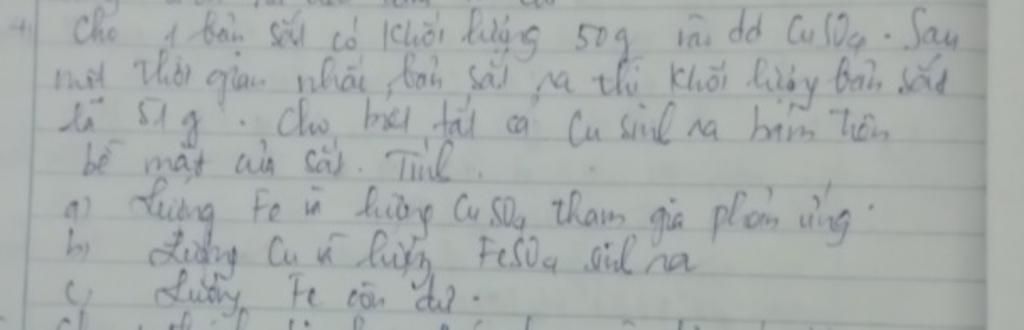 4) Cho 1 bản sắt có khối lượng 50g vào dd CuSO4. Sau
một thời gian nhấc bản sắt ra thì khối lượng bản sắt
là 51g. Cho biết tất cả Cu sinh ra bám trên
bề mặt của sắt. Tính.
a) Lượng Fe và lượng CuSO4 tham gia phản ứng.
b) Lượng Cu và lượng FeSO4 sinh ra
c) Lượng Fe còn dư.